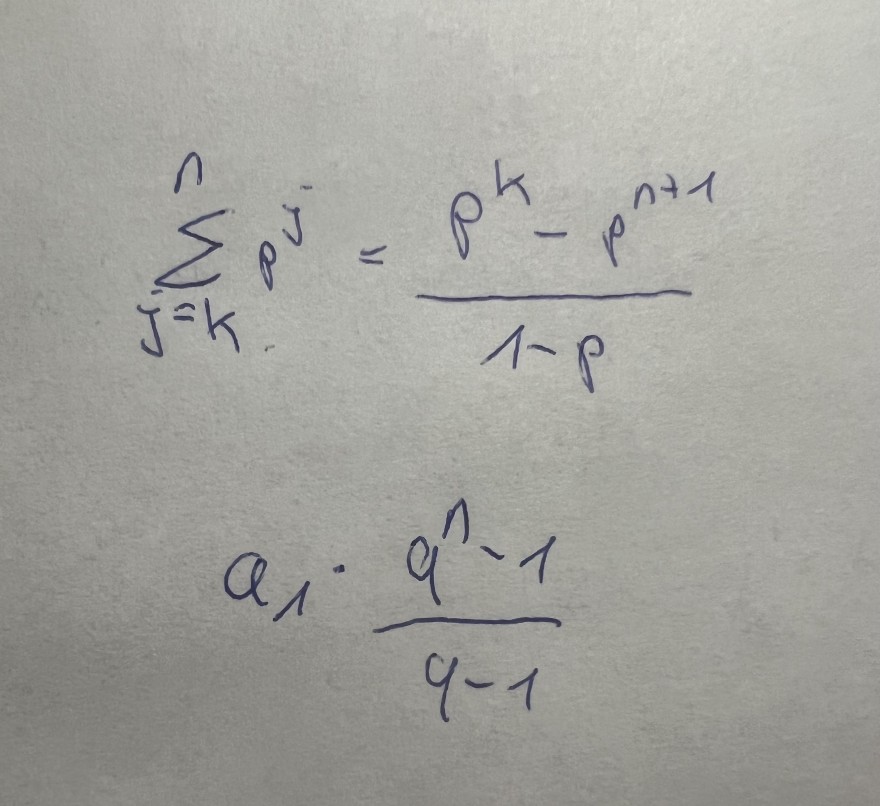 \sum_{j=k}^{n} p^j = \frac{p^k - p^{n+1}}{1-p}
a_1 \cdot \frac{q^n - 1}{q - 1}